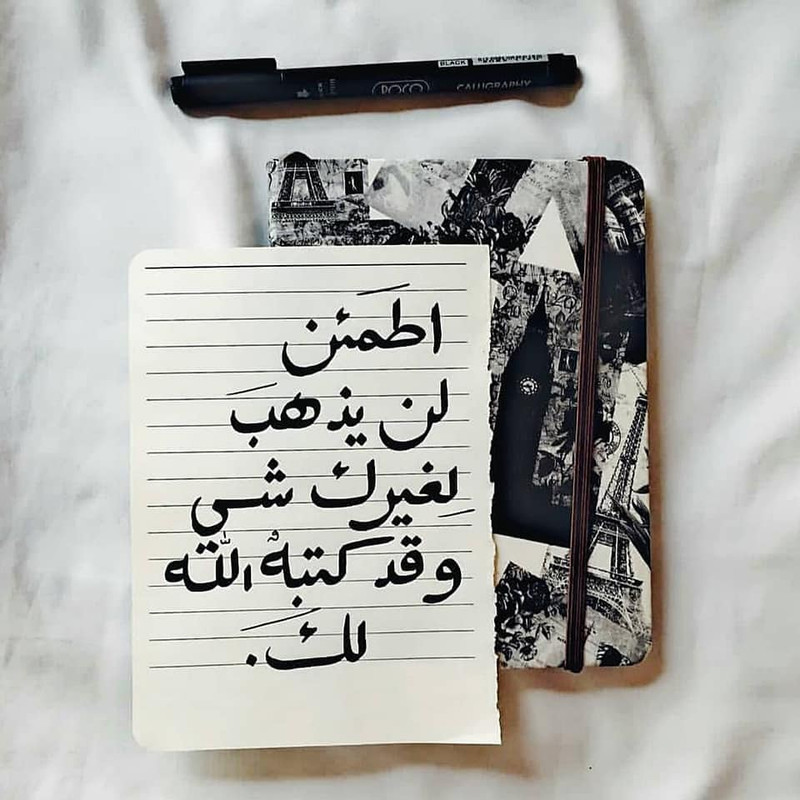 BLACK
ROCO CALLIGRAPHY
اطمئن
لن يذهبَ
لِغيرك شي
وقد كتبهُ اللّه
لكَ.